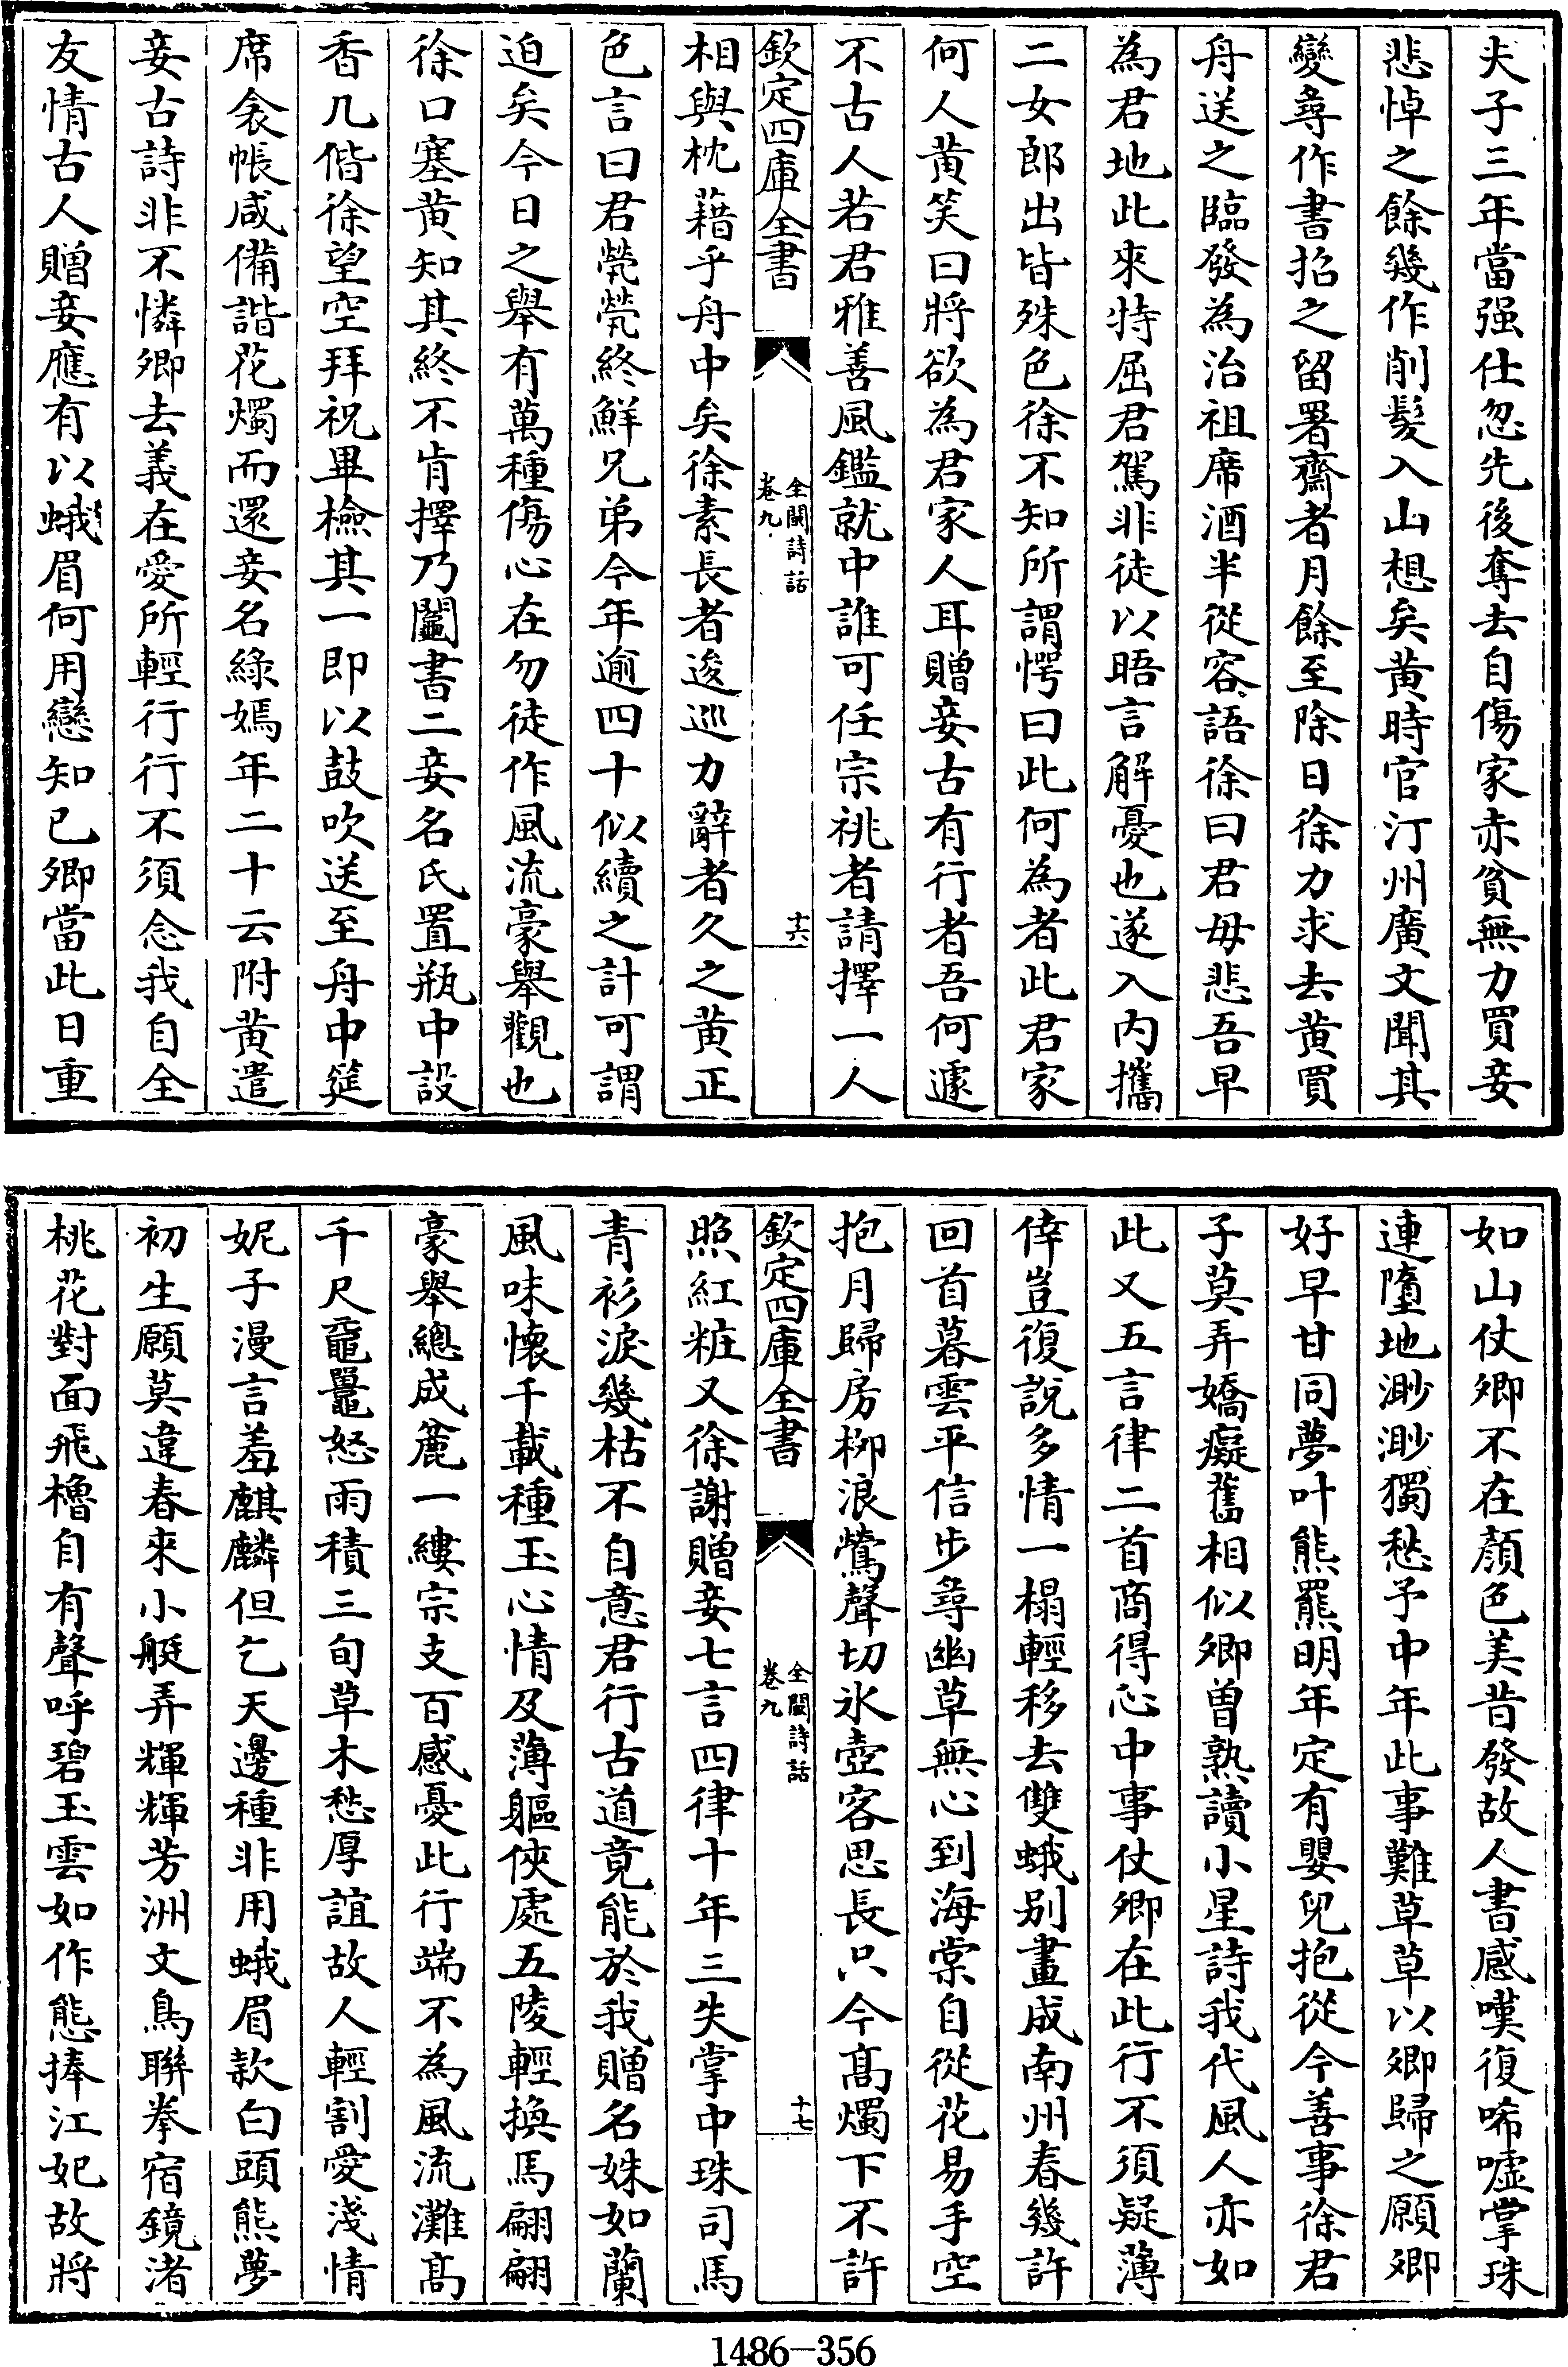 夫子三年當强仕忽先後奪去自傷家赤貧無力買妾
悲悼之餘幾作削髮入山想矣黄時官汀州廣文聞其
變尋作書招之留署齋者月餘至除日徐力求去黄買
舟送之臨發為治祖席酒半從容語徐曰君毋悲吾早
為君地此來特屈君駕非徒以晤言解憂也遂入内攜
二女郎出皆殊色徐不知所謂愕曰此何為者此君家
何人黄笑曰將欲為君家人耳贈妾古有行者吾何遽
不古人若君雅善風鑑就中誰可任宗祧者請擇一人
欽定四庫全書
全閩詩話
卷九
十六
相與枕藉乎舟中矣徐素長者逡巡力辭者久之黄正
色言曰君煢煢終鮮兄弟今年逾四十似續之計可謂
迫矣今日之舉有萬種傷心在勿徒作風流豪舉觀也
徐口塞黄知其終不肯擇乃鬮書二妾名氏置瓶中設
香几偕徐望空拜祝畢檢其一即以鼓吹送至舟中筵
席衾帳咸備諧花燭而還妾名綠嫣年二十云附黄遣
妾古詩非不憐卿去義在愛所輕行行不須念我自全
友情古人贈妾應有以蛾眉何用戀知已卿當此日重
如山仗卿不在顏色美昔發故人書感嘆復唏噓掌珠
連墮地渺渺獨愁予中年此事難草草以卿歸之願卿
好早甘同夢叶熊羆明年定有嬰兒抱從今善事徐君
子莫弄嬌癡舊相似卿曽熟讀小星詩我代風人亦如
此又五言律二首商得心中事仗卿在此行不須疑薄
倖豈復說多情一榻輕移去雙蛾别畫成南州春幾許
回首暮雲平信步尋幽草無心到海棠自從花易手空
抱月歸房栁浪鶯聲切氷壺客思長只今髙燭下不許
欽定四庫全書
全閩詩話
卷九
十七
照紅粧又徐謝贈妾七言四律十年三失掌中珠司馬
青衫淚幾枯不自意君行古道竟能於我贈名姝如蘭
風味懷千載種玉心情及薄軀俠處五陵輕換馬翩翩
豪舉總成麄一縷宗支百感憂此行端不為風流灘髙
千尺黿鼉怒雨積三旬草木愁厚誼故人輕割愛淺情
妮子漫言羞麒麟但乞天邊種非用蛾眉款白頭熊夢
初生願莫違春來小艇弄輝輝芳洲文鳥聯拳宿鏡渚
桃花對面飛櫓自有聲呼碧玉雲如作態捧江妃故將
1486-356